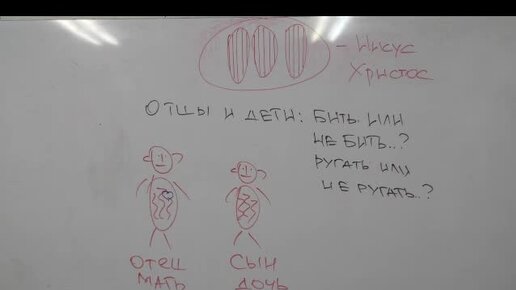 - Иисус
Христос
ОТЦЫ И ДЕТИ: БИТЬ ИЛИ
НЕ БИТЬ..?
РУГАТЬ ИЛИ
НЕ РУГАТЬ..?
ОТЕЦ СЫН
МАТЬ ДОЧЬ